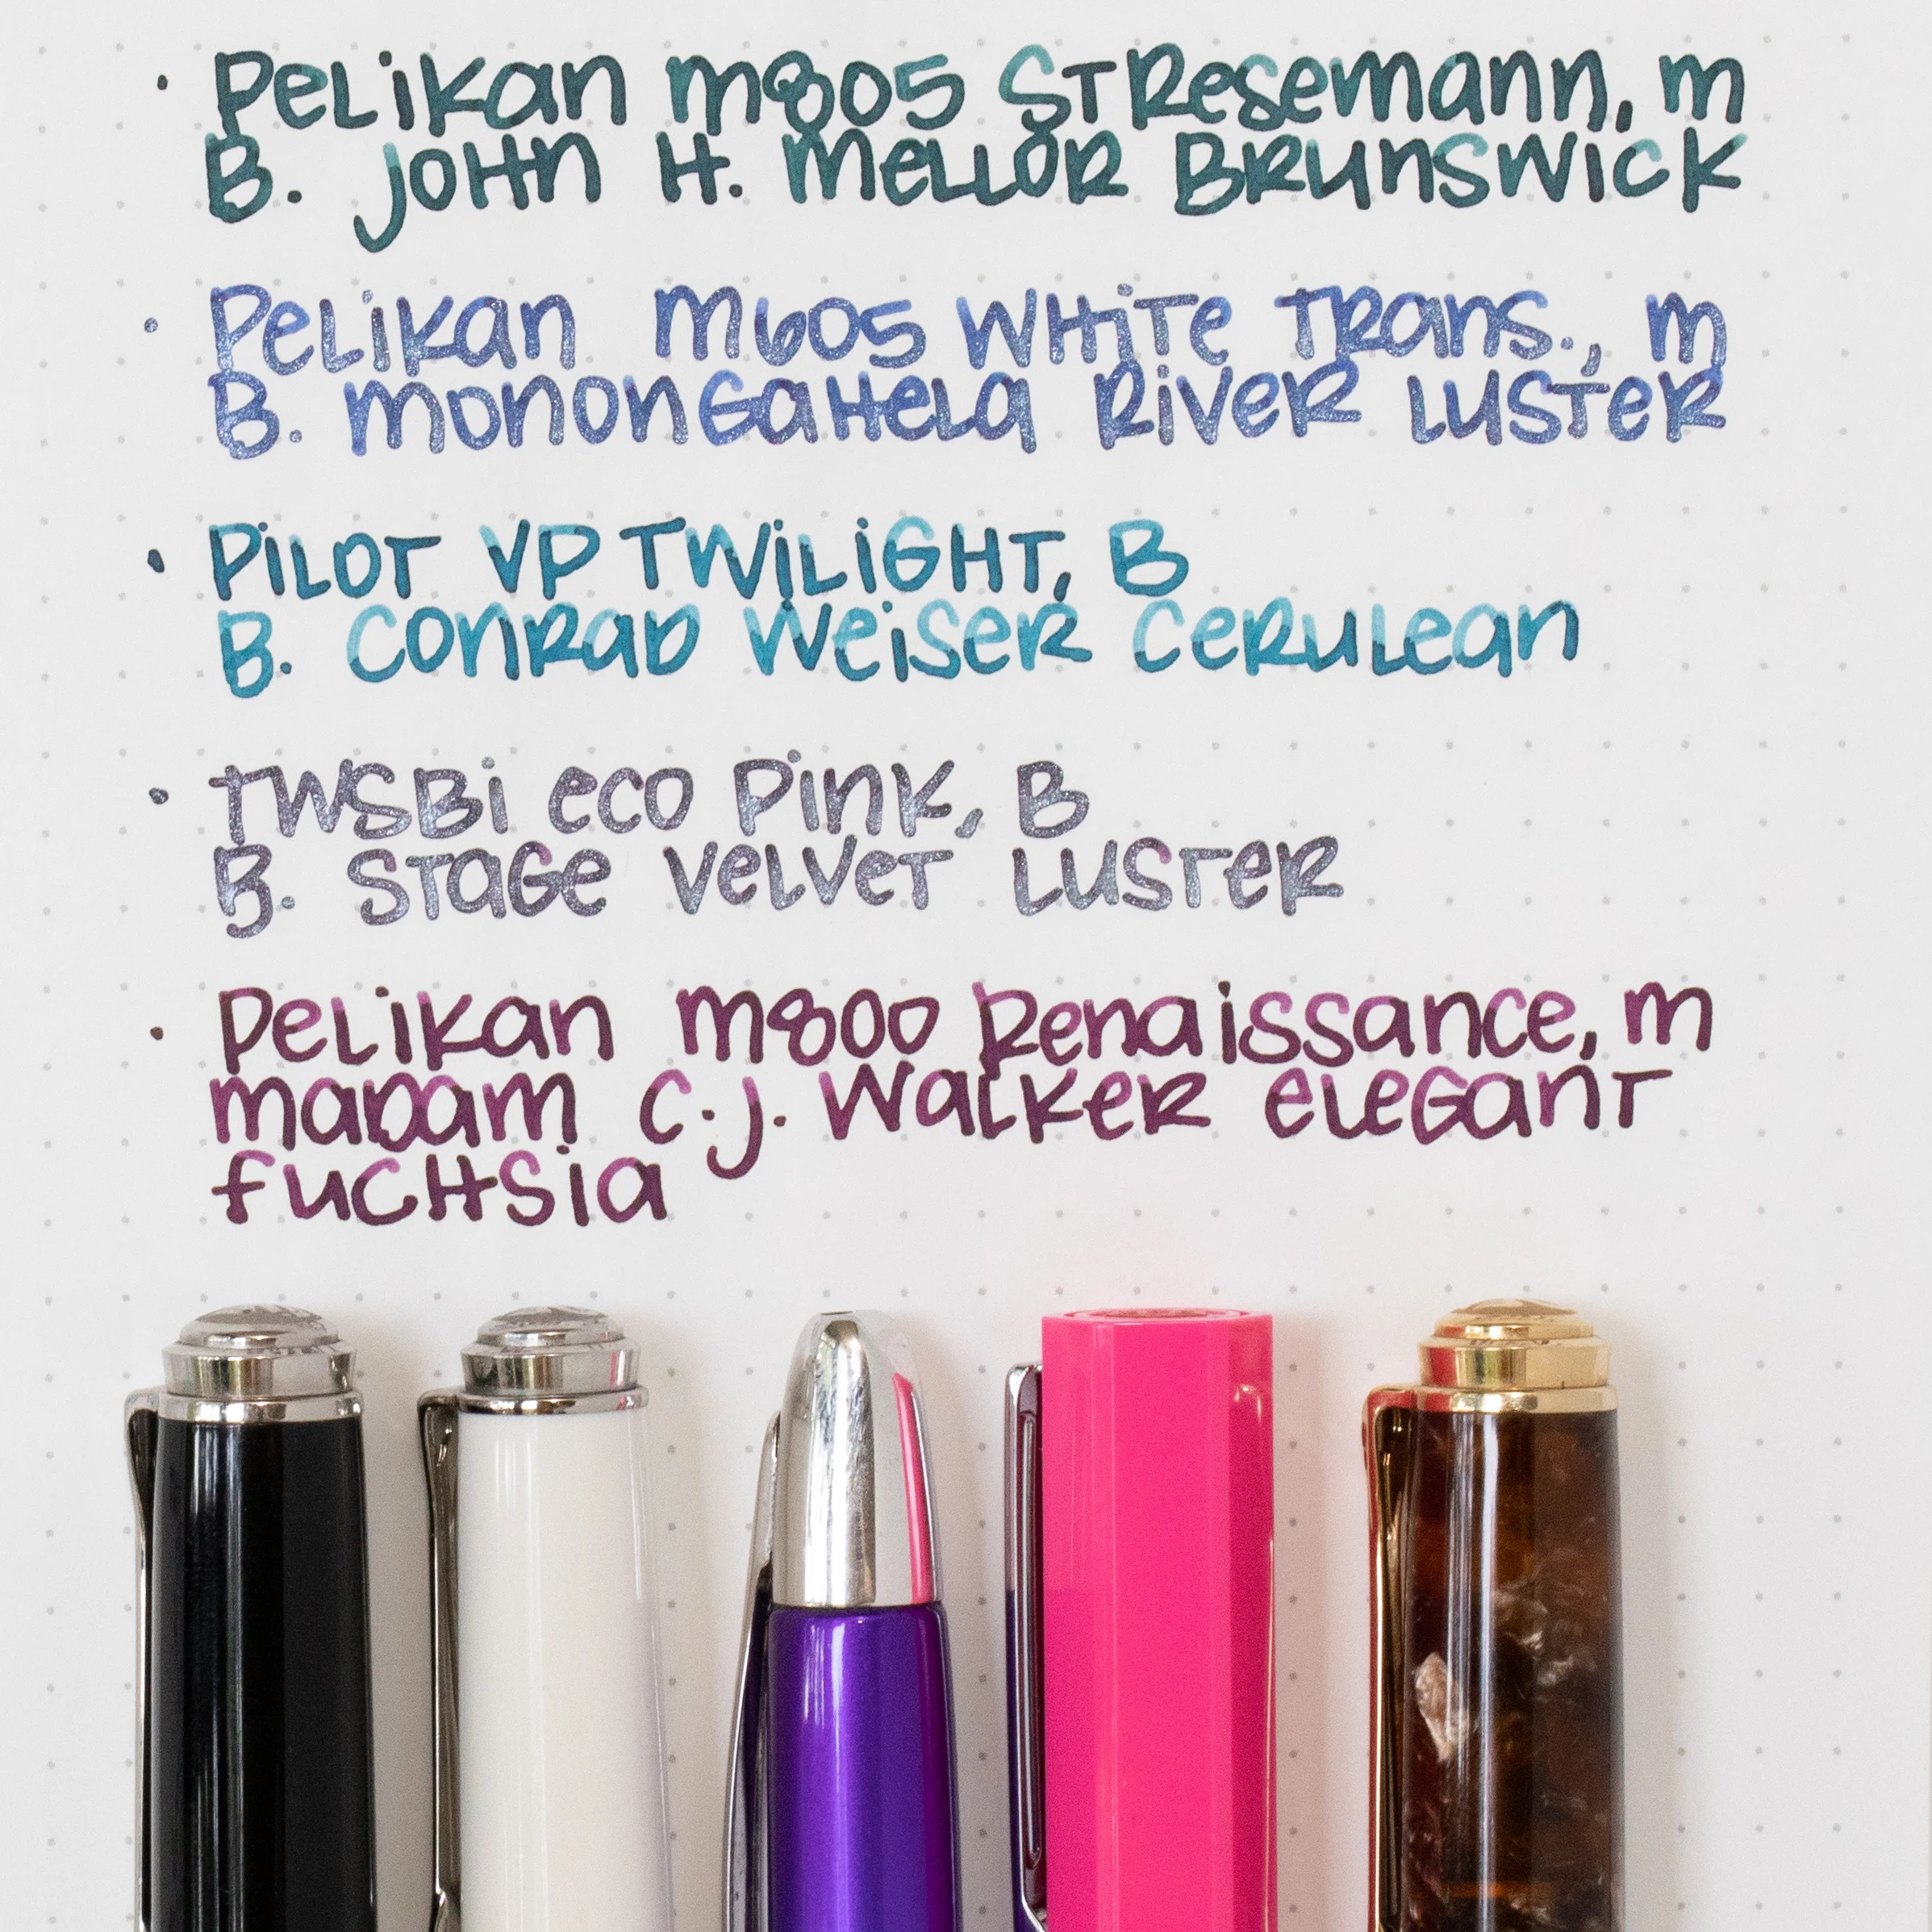 · Pelikan m805 Stresemann, m
B. John H. Mellor Brunswick
· Pelikan m605 White Trans., m
B. Monongahela River Luster
· Pilot VP Twilight, B
B. Conrad Weiser Cerulean
· TWSBi eco Pink, B
B. Stage Velvet Luster
· Pelikan m800 Renaissance, m
madam C.J. Walker elegant
fuchsia